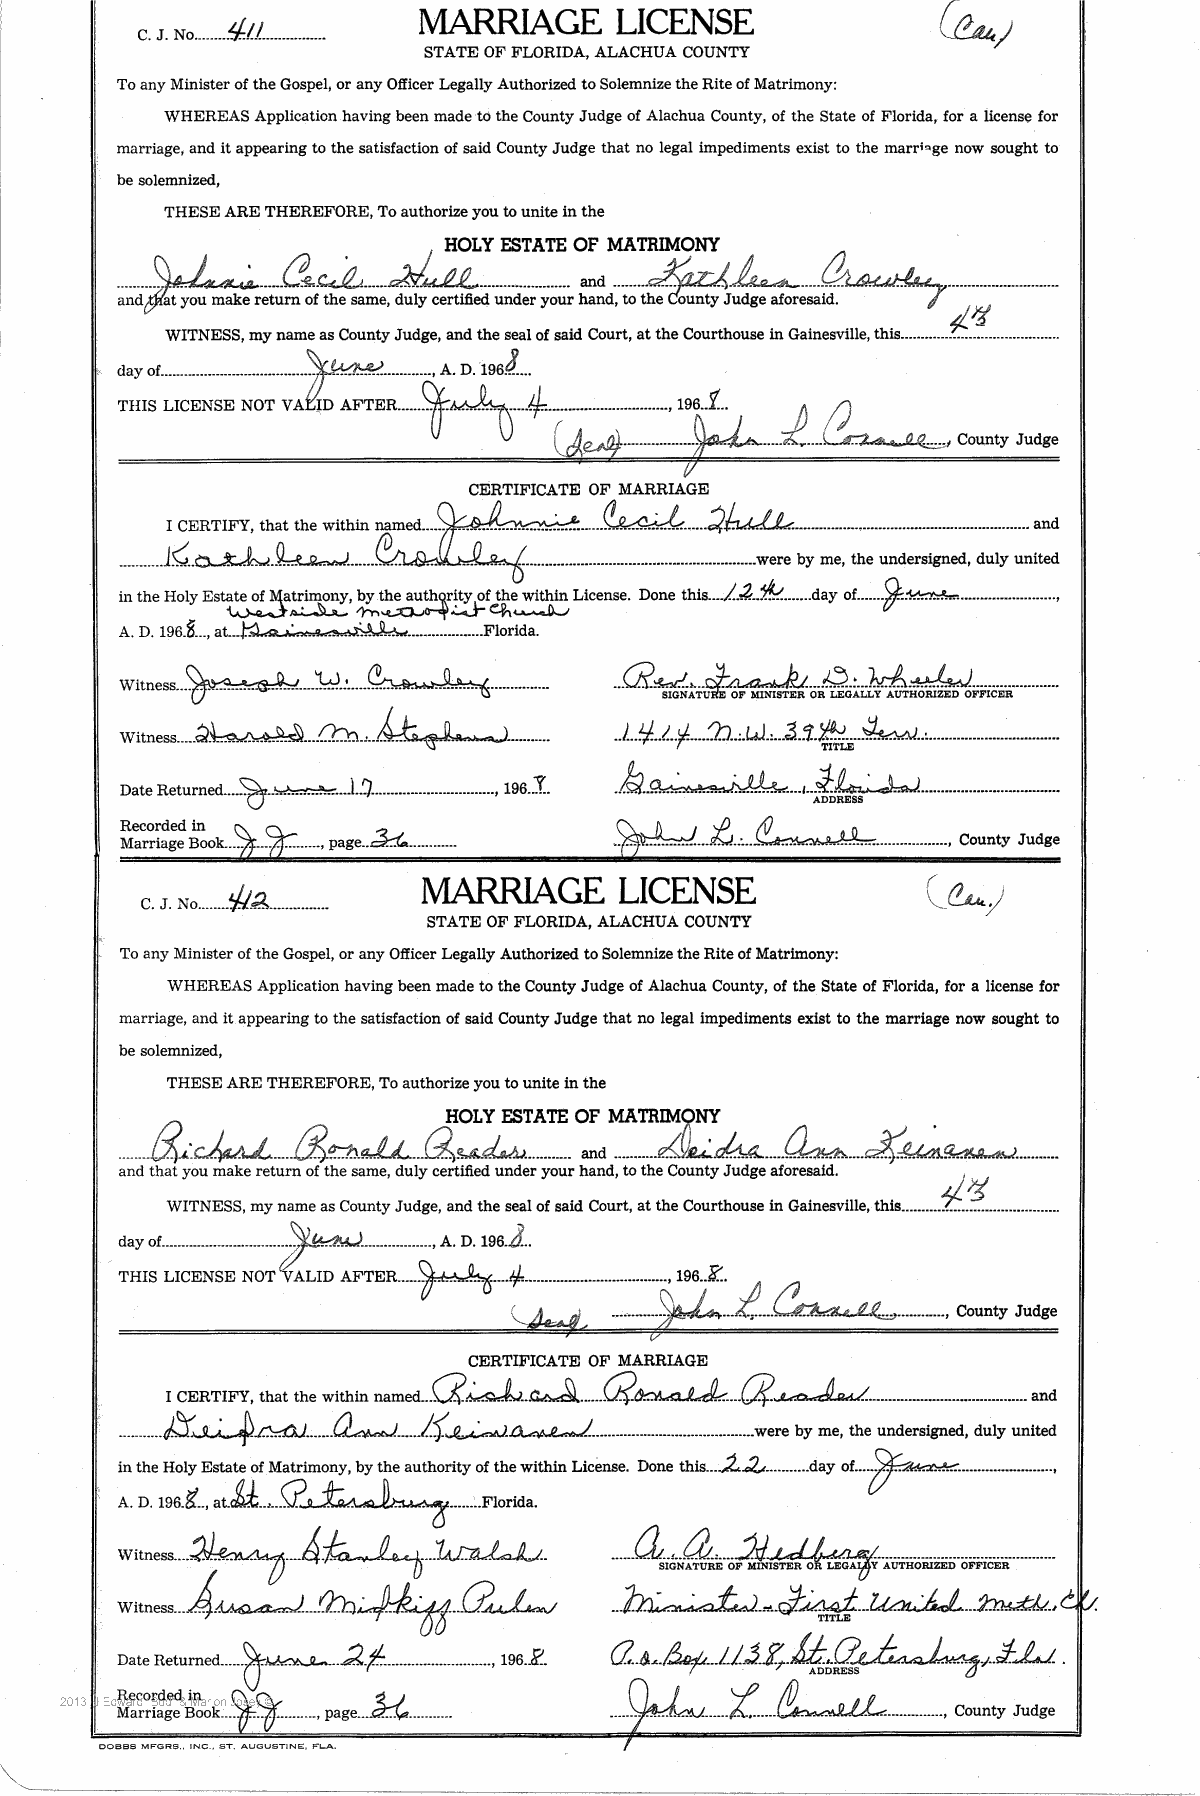 C. J. No. 411 MARRIAGE LICENSE (Cau.)
STATE OF FLORIDA, ALACHUA COUNTY
To any Minister of the Gospel, or any Officer Legally Authorized to Solemnize the Rite of Matrimony:
WHEREAS Application having been made to the County Judge of Alachua County, of the State of Florida, for a license for
marriage, and it appearing to the satisfaction of said County Judge that no legal impediments exist to the marriage now sought to
be solemnized,
THESE ARE THEREFORE, To authorize you to unite in the
HOLY ESTATE OF MATRIMONY
Johnnie Cecil Hull and Kathleen Crowley
and that you make return of the same, duly certified under your hand, to the County Judge aforesaid.
WITNESS, my name as County Judge, and the seal of said Court, at the Courthouse in Gainesville, this
day of June, A. D. 1968
THIS LICENSE NOT VALID AFTER July 4, 1968
(Seal) John L. Connell, County Judge
CERTIFICATE OF MARRIAGE
I CERTIFY, that the within named Johnnie Cecil Hull and
Kathleen Crowley were by me, the undersigned, duly united
in the Holy Estate of Matrimony, by the authority of the within License. Done this 12th day of June,
Westside Methodist Church
A. D. 1968, at Gainesville Florida.
Witness Joseph W. Crowley Rev. Frank D. Wheeler
SIGNATURE OF MINISTER OR LEGALLY AUTHORIZED OFFICER
Witness Harold M. Stephens 1414 N.W. 39th Terr.
TITLE
Date Returned June 17, 1968 Gainesville, Florida
ADDRESS
Recorded in
Marriage Book JJ, page 36 John L. Connell, County Judge
C. J. No. 412 MARRIAGE LICENSE (Cau.)
STATE OF FLORIDA, ALACHUA COUNTY
To any Minister of the Gospel, or any Officer Legally Authorized to Solemnize the Rite of Matrimony:
WHEREAS Application having been made to the County Judge of Alachua County, of the State of Florida, for a license for
marriage, and it appearing to the satisfaction of said County Judge that no legal impediments exist to the marriage now sought to
be solemnized,
THESE ARE THEREFORE, To authorize you to unite in the
HOLY ESTATE OF MATRIMONY
Richard Ronald Reader and Deidra Ann Keinanen
and that you make return of the same, duly certified under your hand, to the County Judge aforesaid.
WITNESS, my name as County Judge, and the seal of said Court, at the Courthouse in Gainesville, this
day of June, A. D. 1968
THIS LICENSE NOT VALID AFTER July 4, 1968
(Seal) John L. Connell, County Judge
CERTIFICATE OF MARRIAGE
I CERTIFY, that the within named Richard Ronald Reader and
Deidra Ann Keinanen were by me, the undersigned, duly united
in the Holy Estate of Matrimony, by the authority of the within License. Done this 22 day of June,
A. D. 1968, at St. Petersburg Florida.
Witness Henry Stanley Walsh A. A. Hedberg
SIGNATURE OF MINISTER OR LEGALLY AUTHORIZED OFFICER
Witness Susan Midkiff Pulen Minister - First United Meth. Ch.
TITLE
Date Returned June 24, 1968 P.O. Box 1138, St. Petersburg, Fla.
ADDRESS
Recorded in
Marriage Book JJ, page 36 John L. Connell, County Judge
DOBBS MFGRS., INC., ST. AUGUSTINE, FLA.